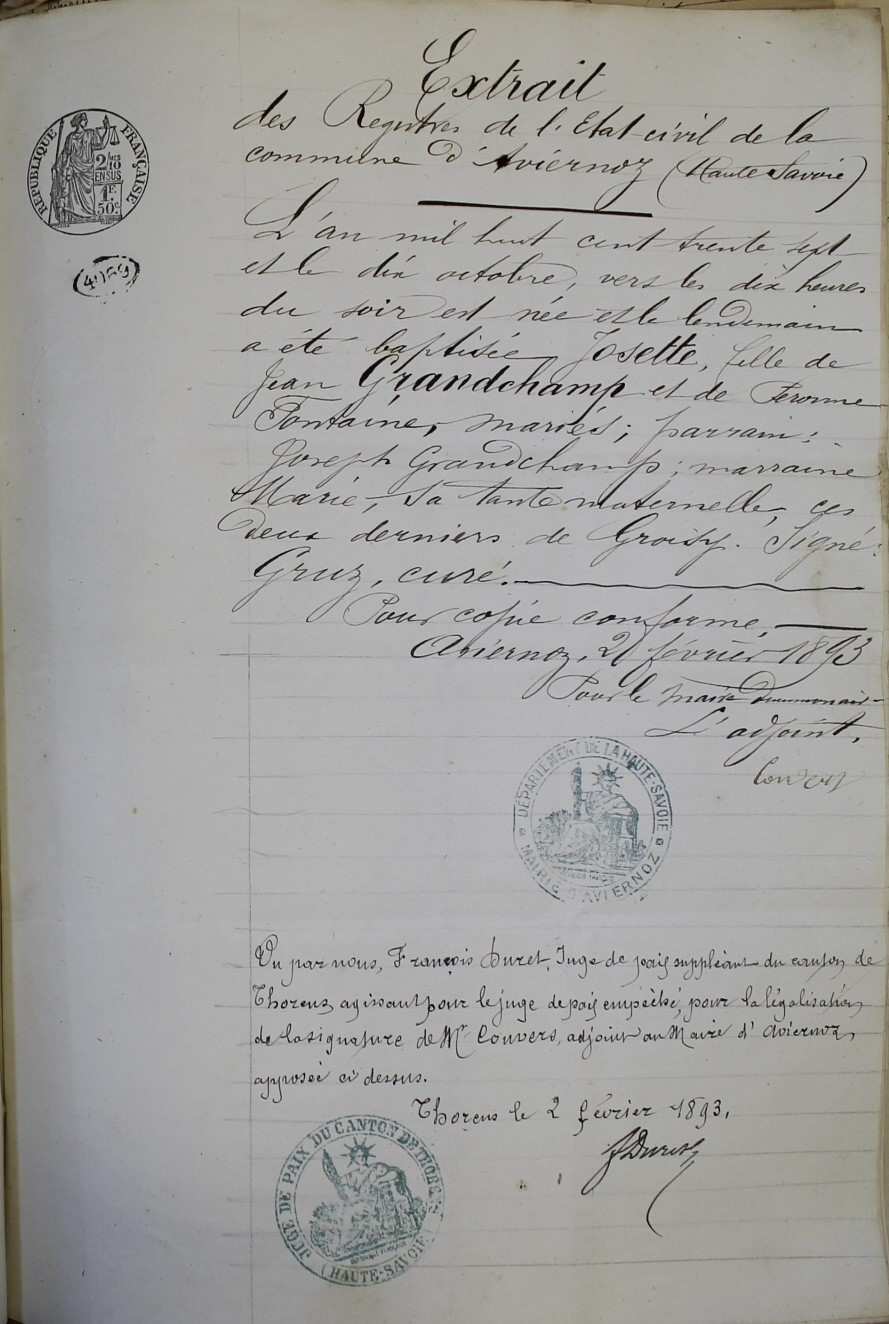 Extrait
des Registres de l'Etat-civil de la
commune d'Aviernoz (Haute Savoie)
RÉPUBLIQUE FRANÇAISE
2/10
EN SUS
1F
50c
L'an mil huit cent trente sept
et le dix octobre, vers les dix heures
du soir est née et le lendemain
a été baptisée Josette, fille de
Jean Grandchamp et de Peronne
Fontaine, mariés; parrain:
Joseph Grandchamp; marraine
Marie, sa tante maternelle, ces
deux derniers de Groisy. Signé:
Gruz, curé.
Pour copie conforme,
Aviernoz, 2 février 1893
Pour le maire
L'adjoint,
DÉPARTEMENT DE LA HAUTE-SAVOIE
MAIRIE D'AVIERNOZ
Vu par nous, François Duret, Juge de paix suppléant du canton de
Thorens, agissant pour le juge de paix empêché, pour la légalisation
de la signature de Mr Convers, adjoint au Maire d'Aviernoz,
apposée ci dessus.
Thorens le 2 février 1893.
JUGE DE PAIX DU CANTON DE THORENS
(HAUTE-SAVOIE)